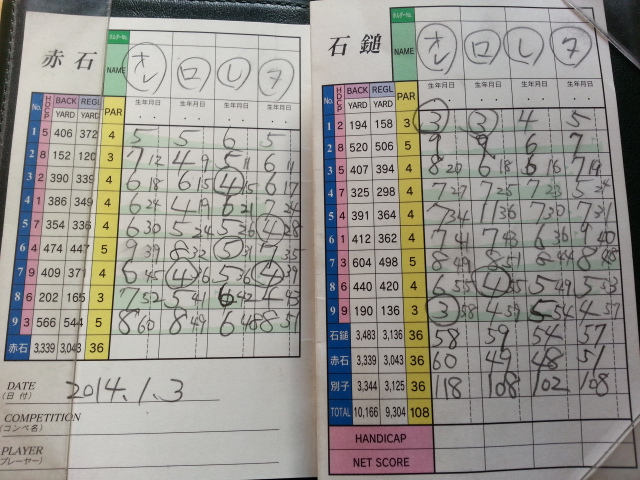 赤石
ホルダーNo.
NAME オレ ロ し タ
No. HDCP BACK YARD REGL YARD PAR 生年月日 生年月日 生年月日 生年月日
1 5 406 372 4 5 5 6 5
2 8 152 120 3 7 12 4 9 5 11 6 11
3 2 390 339 4 6 18 6 15 4 15 6 17
4 1 386 349 4 6 24 4 19 6 21 7 24
5 7 354 336 4 6 30 5 24 5 26 4 28
6 4 474 447 5 9 39 8 32 5 31 7 35
7 9 409 371 4 6 45 4 36 5 36 4 39
8 6 202 165 3 7 52 5 41 6 42 4 43
9 3 566 544 5 8 60 8 49 6 48 8 51
赤石 3,339 3,043 36
DATE
(日 付) 2014.1.3
COMPETITION
(コンペ名)
PLAYER
プレーヤー)
石鎚
ホルダーNo.
NAME オレ ロ し タ
No. HDCP BACK YARD REGL YARD PAR 生年月日 生年月日 生年月日 生年月日
1 2 194 158 3 3 3 4 5
2 8 520 506 5 9 9 6 7
3 5 407 394 4 8 20 6 18 6 16 7 19
4 7 325 298 4 7 27 7 25 7 23 5 24
5 4 391 364 4 7 34 11 36 7 30 7 31
6 1 412 362 4 7 41 7 43 6 36 9 40
7 3 604 498 5 8 49 8 51 8 44 8 48
8 6 440 420 4 6 55 4 55 5 49 5 53
9 9 190 136 3 3 58 4 59 5 54 4 57
石鎚 3,483 3,136 36 58 59 54 57
赤石 3,339 3,043 36 60 49 48 51
別子 3,344 3,125 36 118 108 102 108
TOTAL 10,166 9,304 108
HANDICAP
NET SCORE